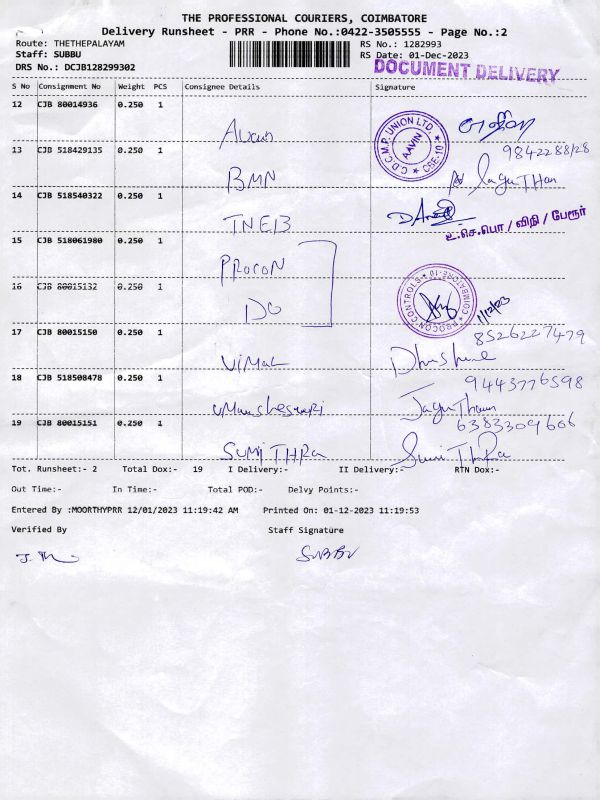 THE PROFESSIONAL COURIERS, COIMBATORE
Delivery Runsheet - PRR - Phone No.:0422-3505555 - Page No.:2
Route: THETHEPALAYAM RS No.: 1282993
Staff: SUBBU RS Date: 01-Dec-2023
DRS No.: DCJB128299302 DOCUMENT DELIVERY
S No Consignment No Weight PCS Consignee Details Signature
12 CJB 80014936 0.250 1
C.D.C.M.P. UNION LTD. AAVIN CBE-10
9842288128
13 CJB 518429135 0.250 1 BMN
14 CJB 518540322 0.250 1 TNEB
உ.செ.பொ / விநி / பேரூர்
15 CJB 518061980 0.250 1 PROCON
16 CJB 80015132 0.250 1 DO PROCON CONTROLS COIMBATORE-10 1/12/23
17 CJB 80015150 0.250 1 VIMAL 8526227479
18 CJB 518508478 0.250 1 9443776598
19 CJB 80015151 0.250 1 SUMITHRA 6383309606
Sumithra
Tot. Runsheet:- 2 Total Dox:- 19 I Delivery:- II Delivery:- RTN Dox:-
Out Time:- In Time:- Total POD:- Delvy Points:-
Entered By :MOORTHYPRR 12/01/2023 11:19:42 AM Printed On: 01-12-2023 11:19:53
Verified By Staff Signature
SUBBU